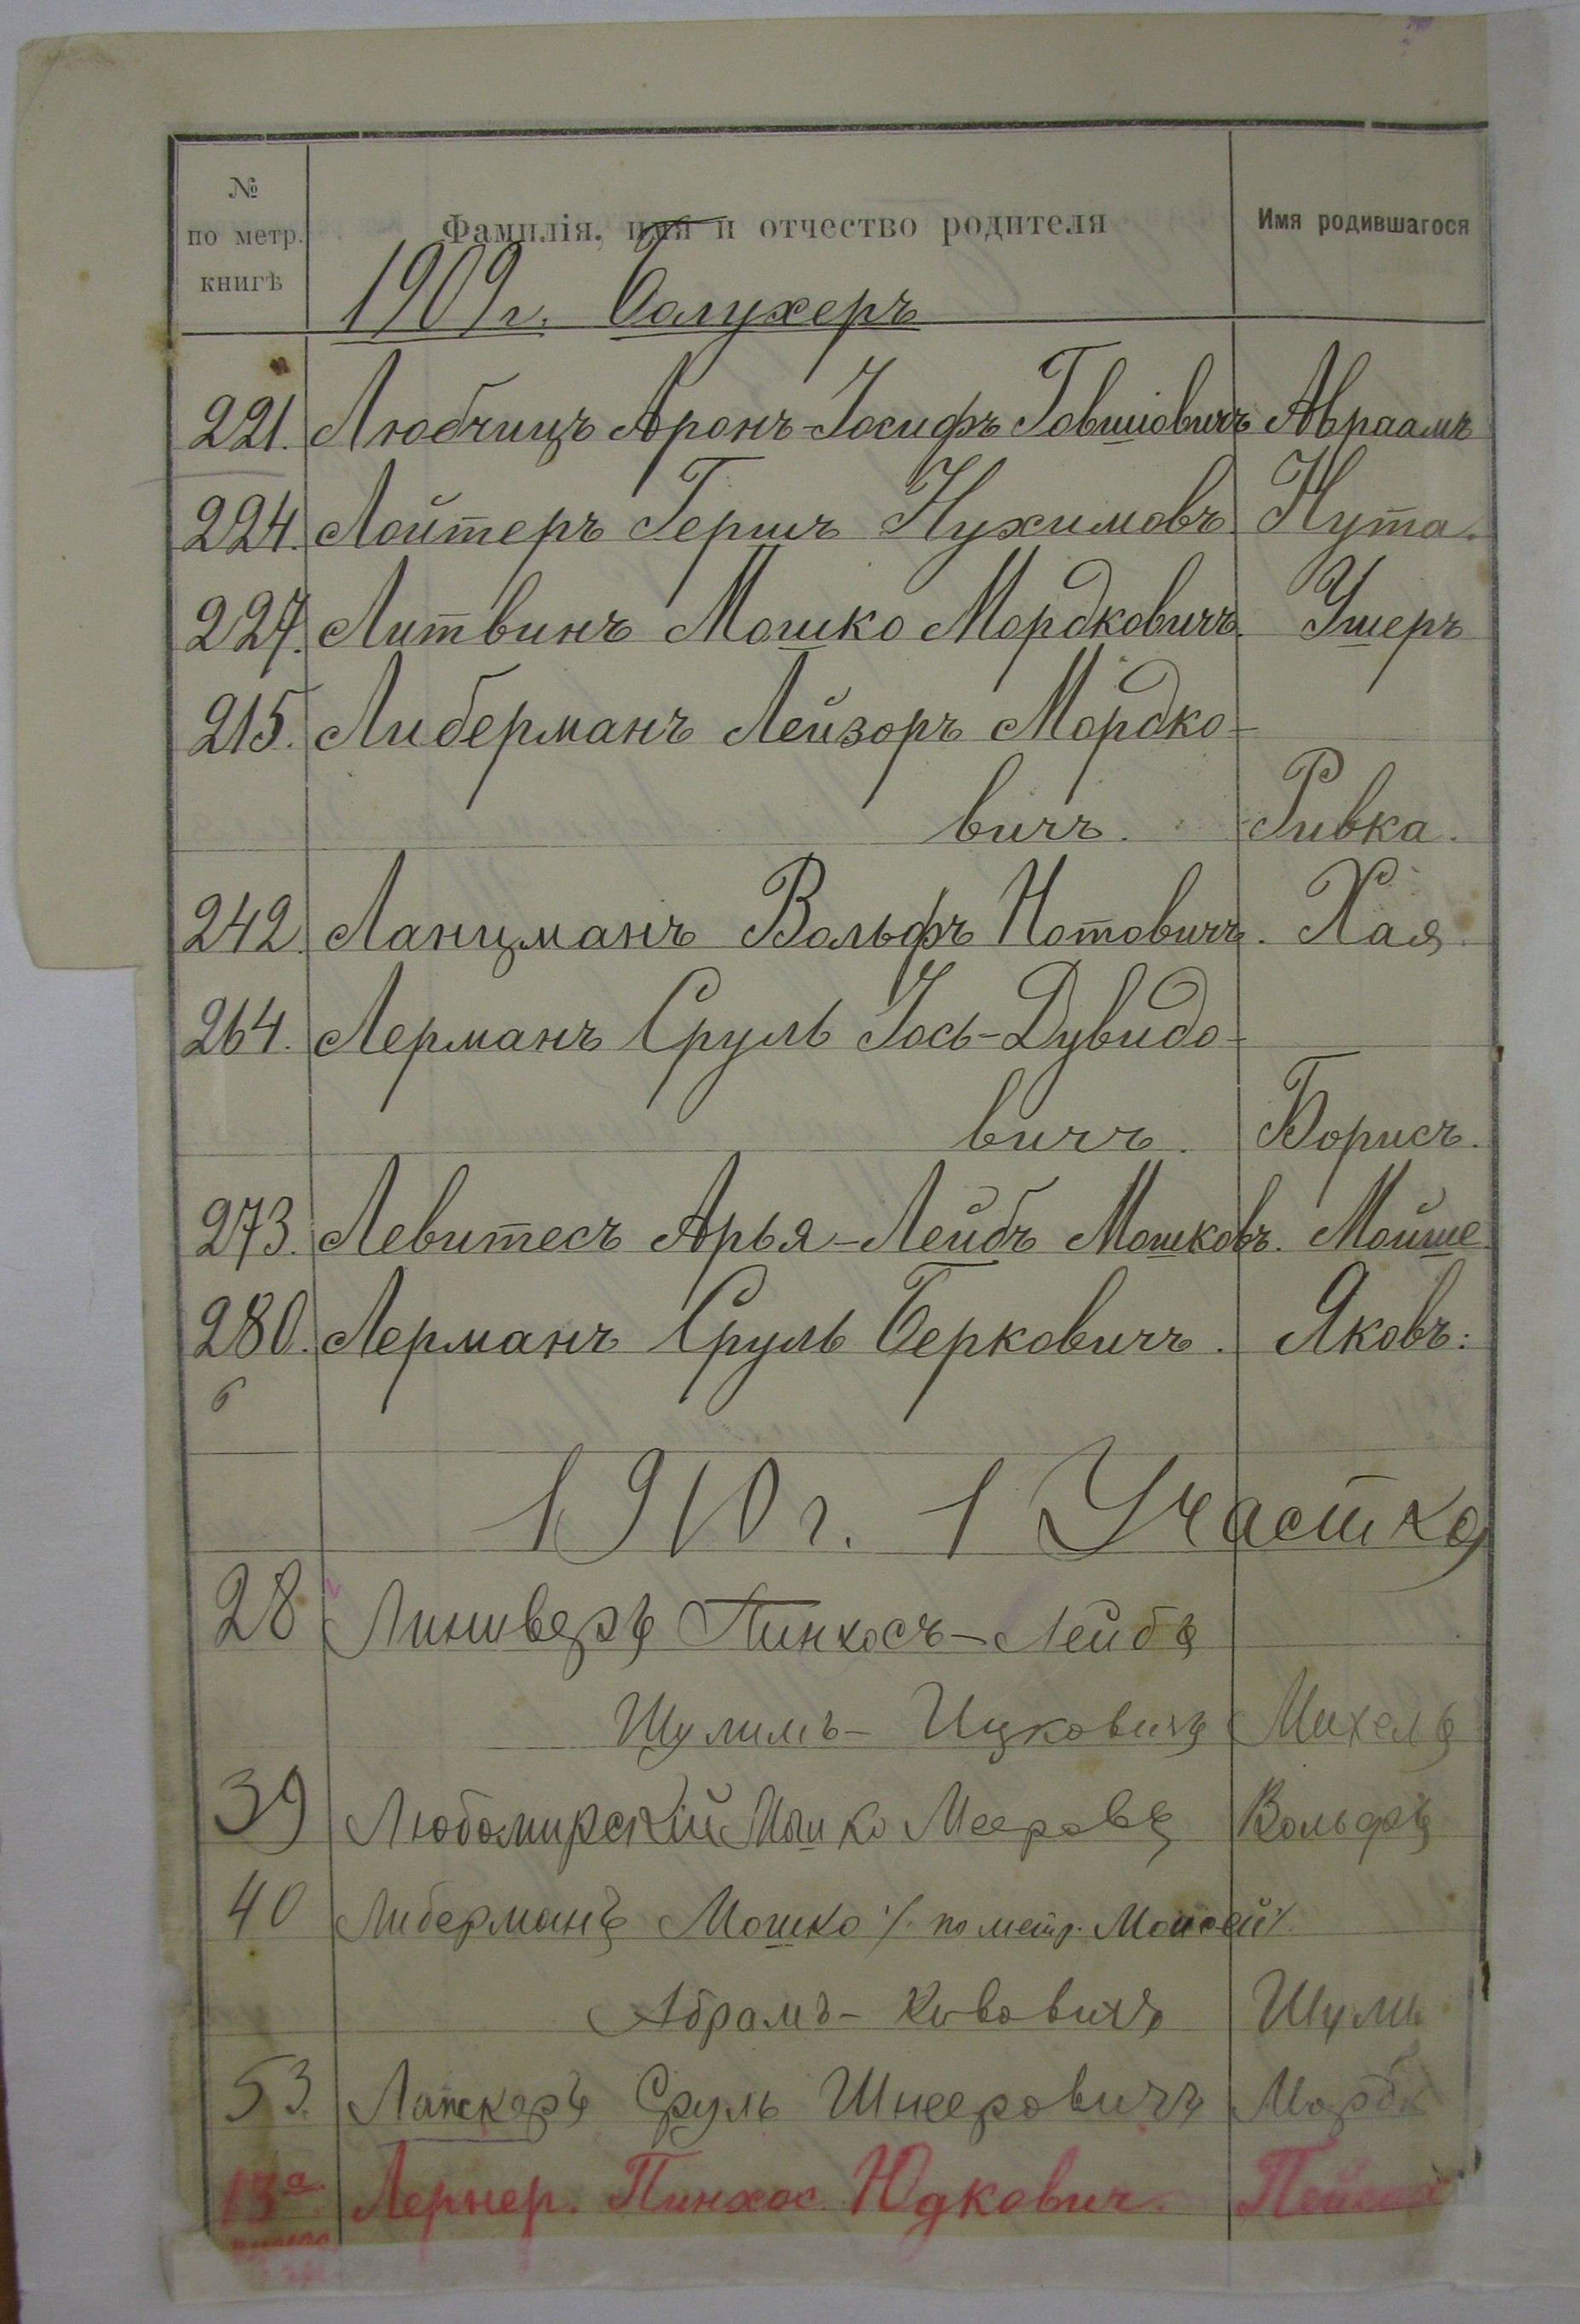 № по метр. книгѣ
Фамилія, имя и отчество родителя
Имя родившагося
1909 г. Солухеръ
221. Любчицъ Аронъ-Іосифъ Говшіовичъ Авраамъ
224. Лойтеръ Гершъ Нухимовъ. Нута.
227. Литвинъ Мошко Мордковичъ. Ушеръ
215. Либерманъ Лейзоръ Мордко-
вичъ. Ривка.
242. Ланцманъ Вольфъ Нотовичъ. Хая.
264. Лерманъ Сруль Іось-Дувидо-
вичъ. Борисъ.
273. Левитесъ Арья-Лейбъ Мошковъ. Мойше
280. Лерманъ Сруль Берковичъ. Яковъ:
6
1910 г. 1 Участка
28 Линиверъ Пинхосъ-Лейбъ
Шулимъ- Ицковичъ Михель
39 Любомирскій Мошко Мееровъ Вольфъ
40 Либерманъ Мошко ./. по метр. Моисей ./.
Абрамъ- Кововичъ Шулим
53. Лапскеръ Сруль Шнееровичъ Мордк
13а. Лернер. Пинхос Юдкович. Пейсах